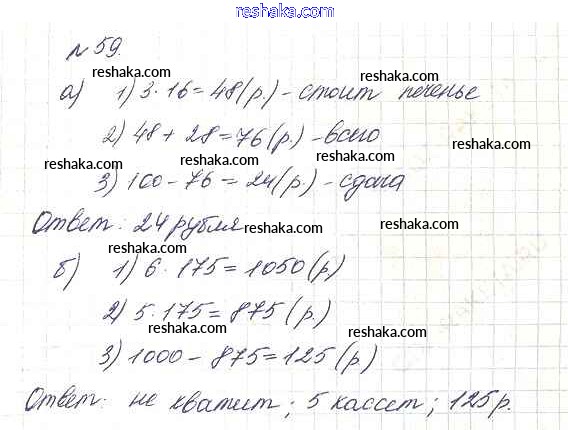 reshaka.com
№ 59.
reshaka.com
а) 1) 3·16=48(р.)-стоит печенье
reshaka.com reshaka.com
2) 48+28=76(р.)-всего
reshaka.com reshaka.com
3) 100-76=24(р.)-сдача
reshaka.com
Ответ: 24 рубля
reshaka.com reshaka.com
б) 1) 6·175=1050(р)
reshaka.com
2) 5·175=875(р.)
reshaka.com reshaka.com
3) 1000-875=125(р)
reshaka.com
Ответ: не хватит; 5 кассет; 125р.
reshaka.com reshaka.com